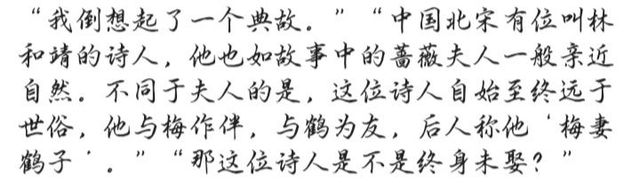 “我倒想起了一个典故。”“中国北宋有位叫林
和靖的诗人，他也如故事中的蔷薇夫人一般亲近
自然。不同于夫人的是，这位诗人自始至终远于
世俗，他与梅作伴，与鹤为友，后人称他‘梅妻
鹤子’。”“那这位诗人是不是终身未娶？”